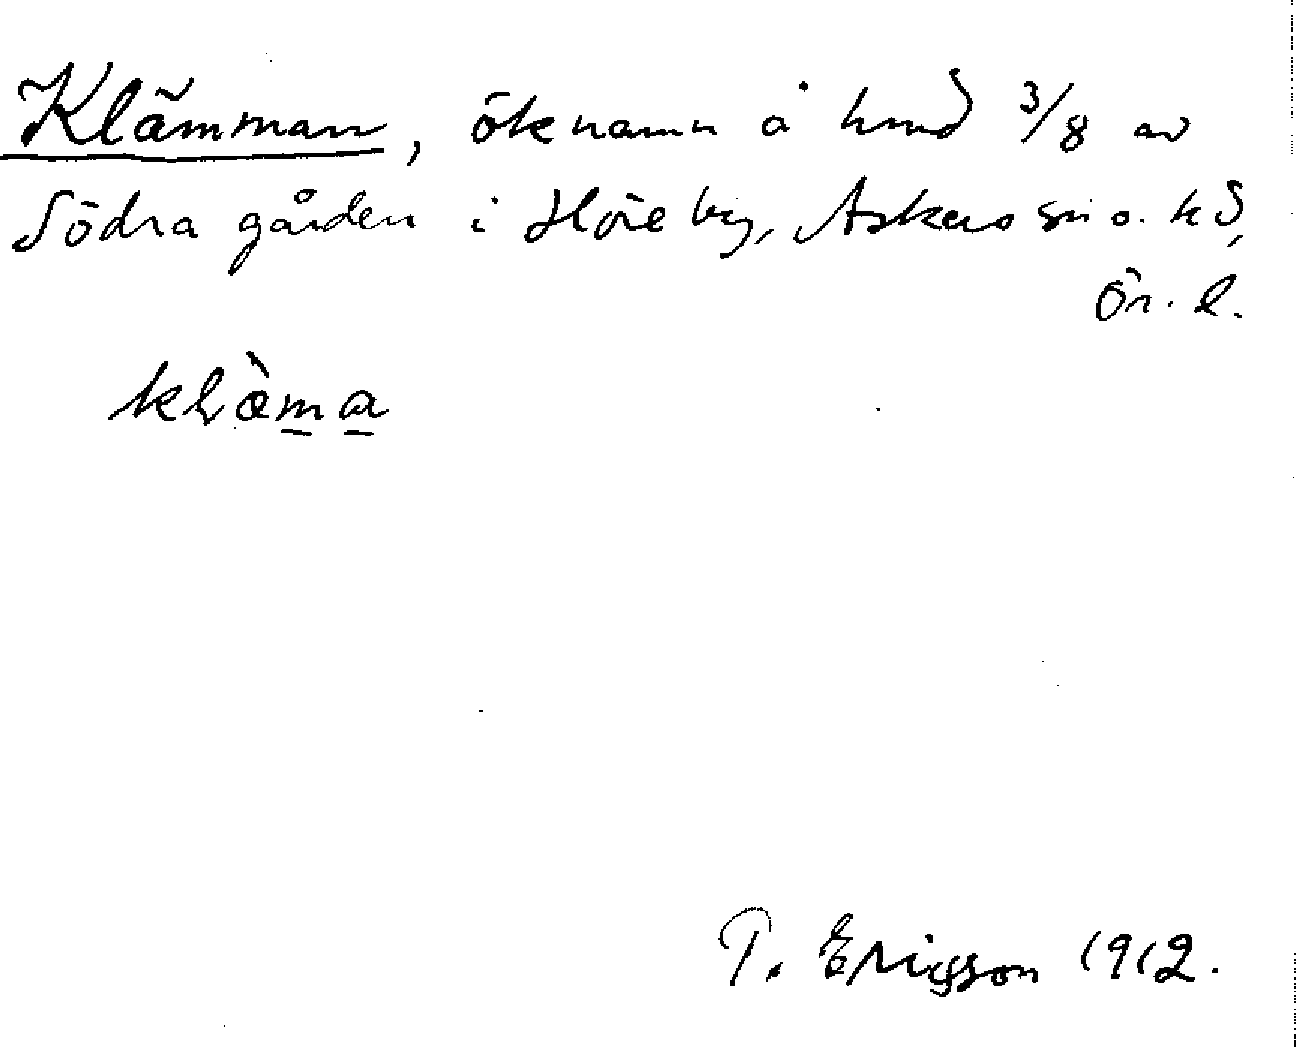 Klämman, öknamn å hmd 3/8 av
Södra gården i Höreby, Askers sn o. hd,
Ör. l.
klæ̀ma
T. Ericsson 1912.